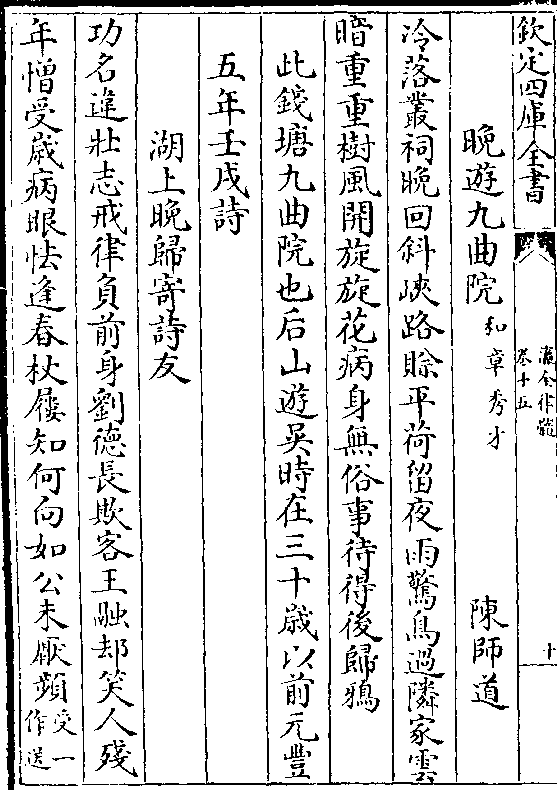 欽定四庫全書
瀛奎律髓
卷十五
十
晚遊九曲院 和章秀才 陳師道
冷落叢祠晚回斜峽路賖平荷留夜雨驚鳥過隣家雲
暗重重樹風開旋旋花病身無俗事待得後歸鴉
此錢塘九曲院也后山遊吳時在三十歲以前元豐
五年壬戌詩
湖上晚歸寄詩友
功名違壯志戒律負前身劉德長欺客王融却笑人殘
年憎受歲病眼怯逢春杖屨知何向如公未厭頻 受一作送